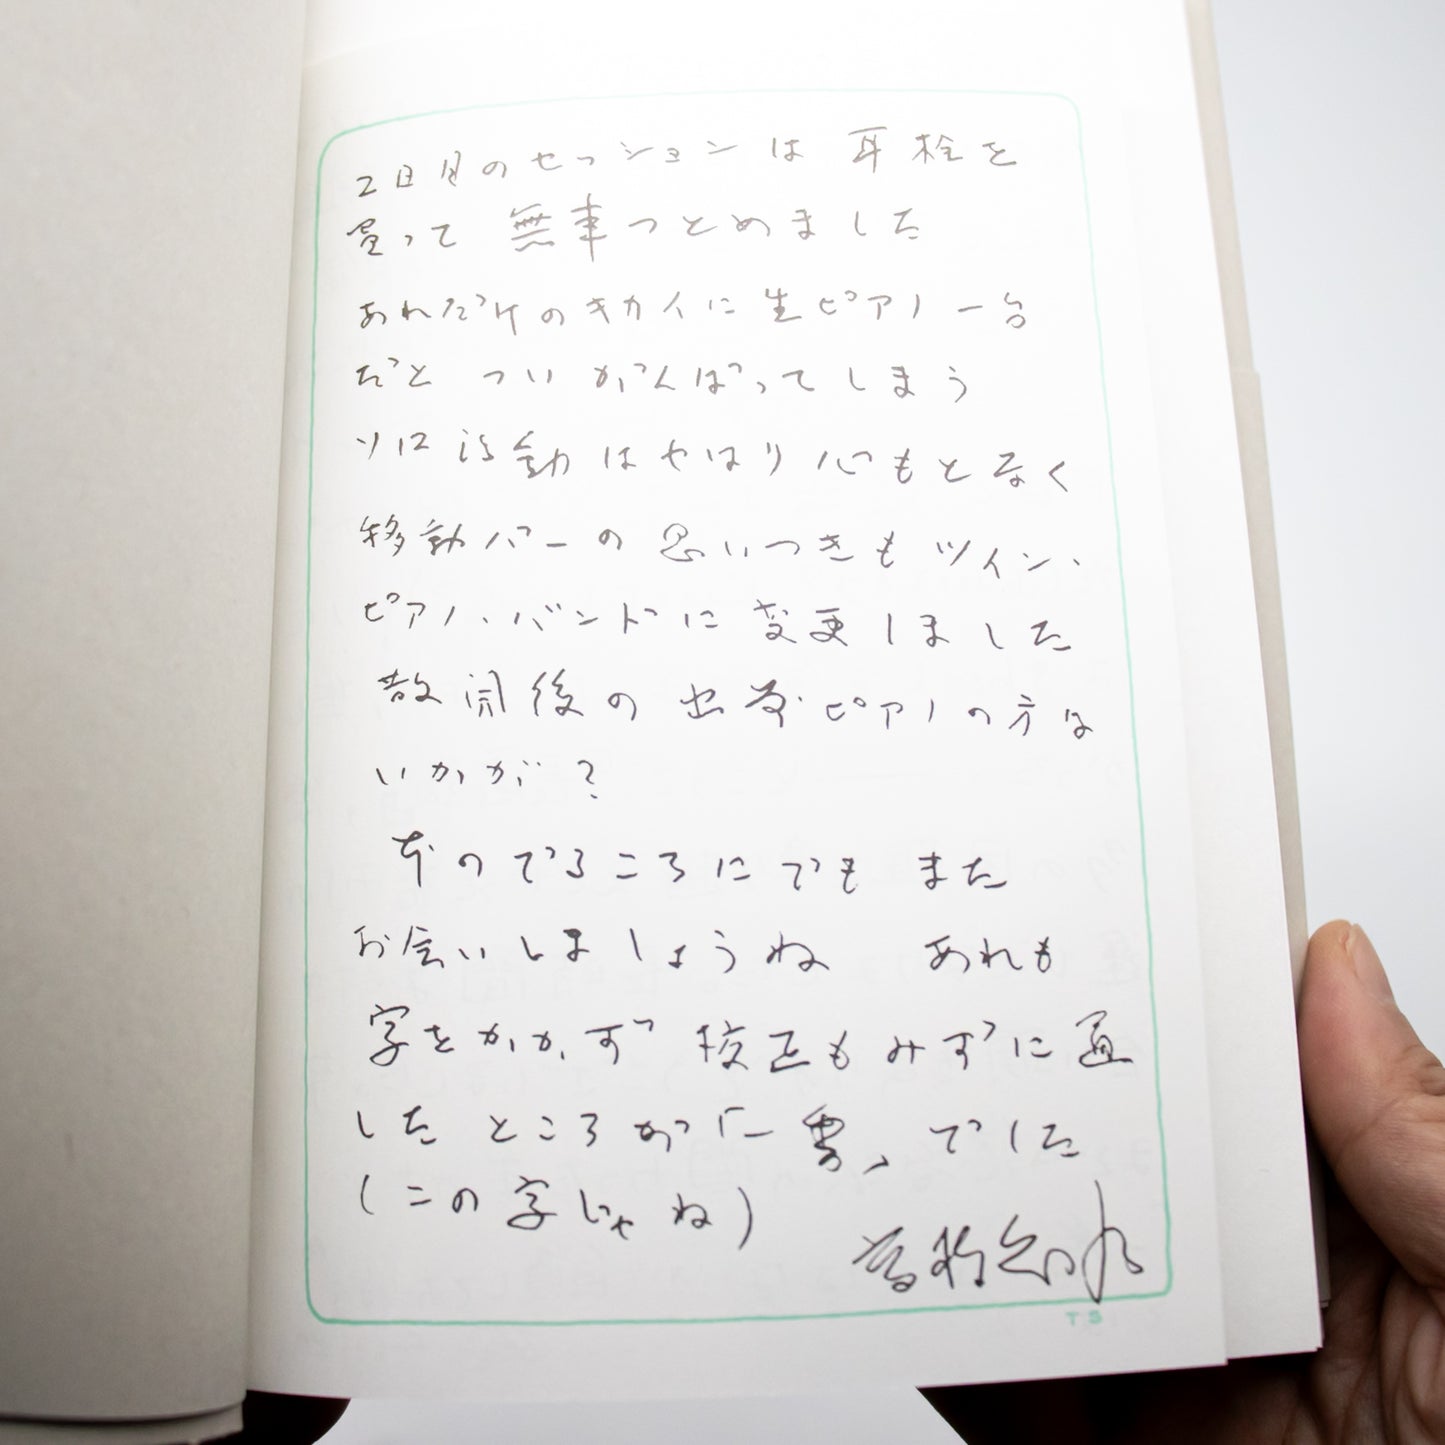 2日目のセッションは 耳栓を
買って 無事つとめました
あれだけのキカイに生ピアノ一台
だと ついがんばってしまう
ソロ活動はやはり心もとなく
移動バーの思いつきもツイン・
ピアノ・バンドに変更しました
散開後の出番・ピアノの方は
いかが?
本のでるころにでも また
お会いしましょうね あれも
字をかかず 校正もみずに通
したところが「一番」でした
(この字じゃね)
TS